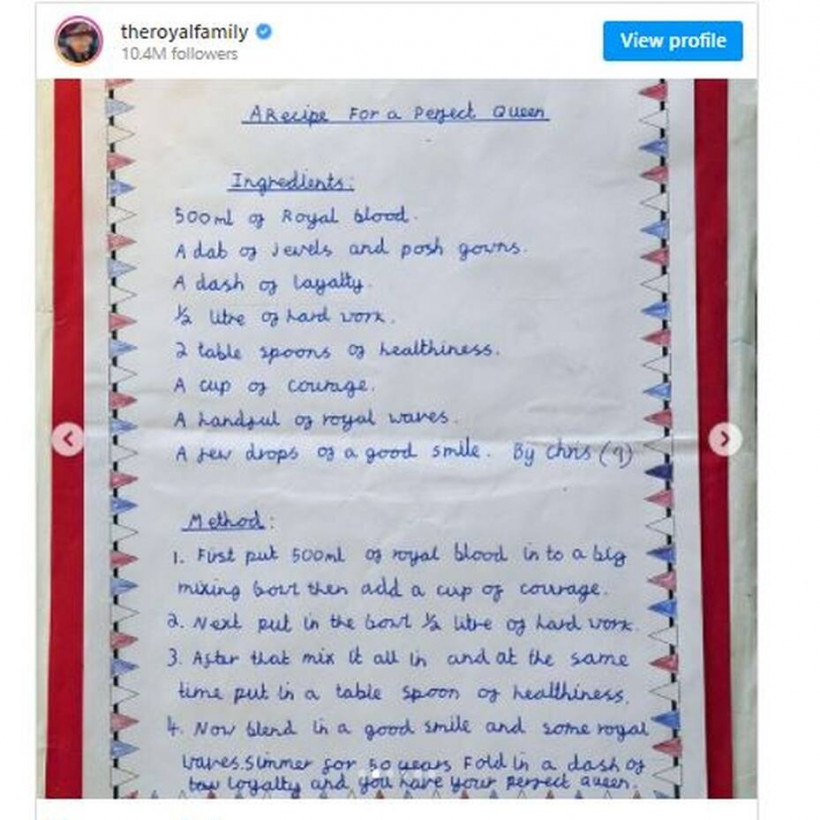 theroyalfamily
10.4M followers
View profile
A Recipe For a Perfect Queen
Ingredients:
500ml of Royal blood.
A dab of jewels and posh gowns.
A dash of loyalty.
½ litre of hard work.
2 table spoons of healthiness.
A cup of courage.
A handful of royal waves.
A few drops of a good smile. By Chris (9)
Method:
1. First put 500ml of royal blood in to a big
mixing bowl then add a cup of courage.
2. Next put in the bowl ½ litre of hard work.
3. After that mix it all in and at the same
time put in a table spoon of healthiness.
4. Now blend in a good smile and some royal
waves. Simmer for 50 years Fold in a dash of
loyalty and you have your perfect queen.